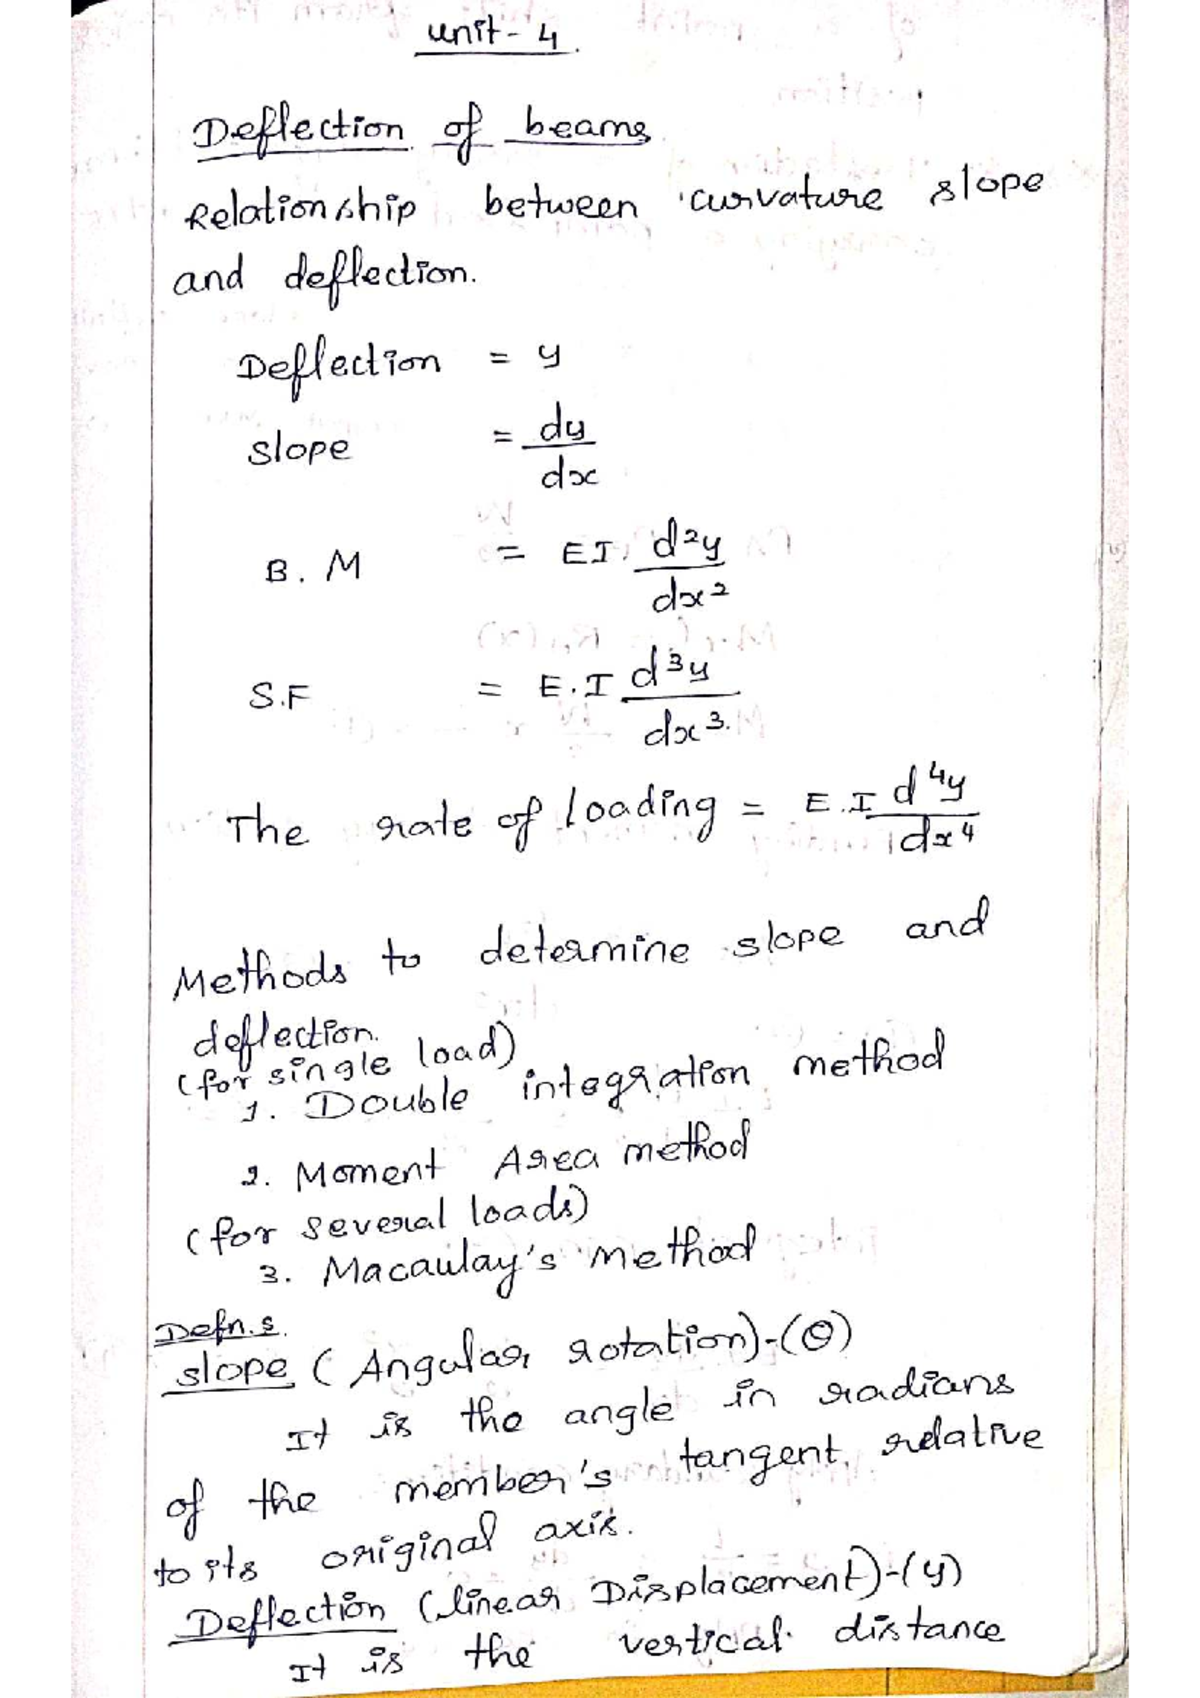 unit - 4.
Deflection of beams
Relationship between curvature slope
and deflection.
Deflection = y
slope = dy/dx
B. M = EI. d²y/dx²
S.F = E.I d³y/dx³.
The rate of loading = E.I d⁴y/dx⁴
Methods to determine slope and
deflection.
(for single load)
1. Double integration method
2. Moment Area method
(for several loads)
3. Macaulay's method
Defn.s.
slope (Angular rotation)-(θ)
It is the angle in radians
of the member's tangent. relative
to its original axis.
Deflection (linear Displacement)-(y)
It is the vertical distance